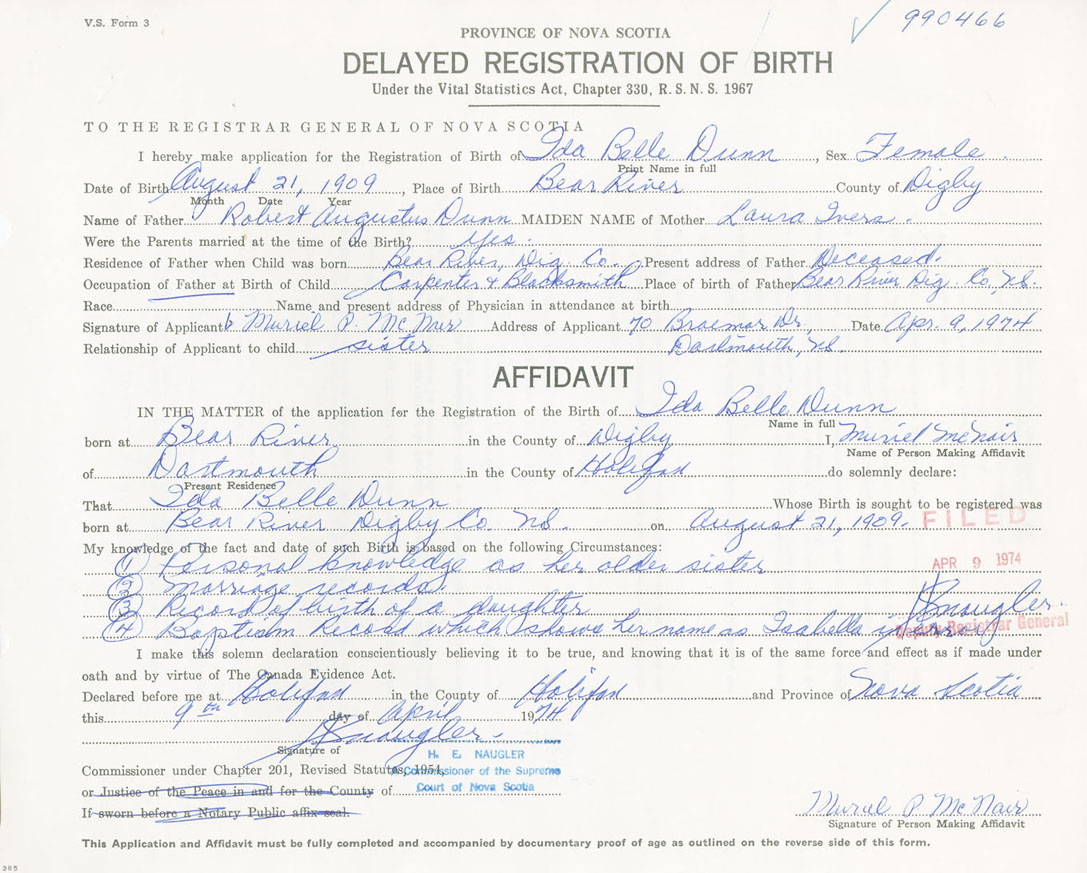 V.S. Form 3
990466
PROVINCE OF NOVA SCOTIA
DELAYED REGISTRATION OF BIRTH
Under the Vital Statistics Act, Chapter 330, R. S. N. S. 1967
TO THE REGISTRAR GENERAL OF NOVA SCOTIA
I hereby make application for the Registration of Birth of Ida Belle Dunn, Sex Female
Print Name in full
Date of Birth August 21, 1909, Place of Birth Bear River County of Digby
Month Date Year
Name of Father Robert Augustus Dunn MAIDEN NAME of Mother Laura Ivers.
Were the Parents married at the time of the Birth? yes.
Residence of Father when Child was born Bear River, Dig. Co. Present address of Father Deceased.
Occupation of Father at Birth of Child Carpenter & Blacksmith Place of birth of Father Bear River Dig. Co., N.S.
Race Name and present address of Physician in attendance at birth
Signature of Applicant Muriel P. McNair Address of Applicant 70 Braemar Dr., Date Apr. 9, 1974
Relationship of Applicant to child sister Dartmouth, N.S.
AFFIDAVIT
IN THE MATTER of the application for the Registration of the Birth of Ida Belle Dunn
Name in full
born at Bear River in the County of Digby I, Muriel McNair
Name of Person Making Affidavit
of Dartmouth in the County of Halifax do solemnly declare:
Present Residence
That Ida Belle Dunn Whose Birth is sought to be registered was
born at Bear River Digby Co. N.S. on August 21, 1909.
FILED
My knowledge of the fact and date of such Birth is based on the following Circumstances:
① Personal knowledge as her older sister
APR 9 1974
② Marriage records.
③ Record of birth of a daughter
④ Baptism Record which shows her name as Isabella
HENaugler.
Deputy Registrar General
I make this solemn declaration conscientiously believing it to be true, and knowing that it is of the same force and effect as if made under
oath and by virtue of The Canada Evidence Act.
Declared before me at Halifax in the County of Halifax and Province of Nova Scotia
this 9th day of April 1974
HENaugler.
Signature of
H. E. NAUGLER
Commissioner under Chapter 201, Revised Statutes, 1954,
A Commissioner of the Supreme
or Justice of the Peace in and for the County of
Court of Nova Scotia
If sworn before a Notary Public affix seal.
Muriel P McNair
Signature of Person Making Affidavit
This Application and Affidavit must be fully completed and accompanied by documentary proof of age as outlined on the reverse side of this form.
385